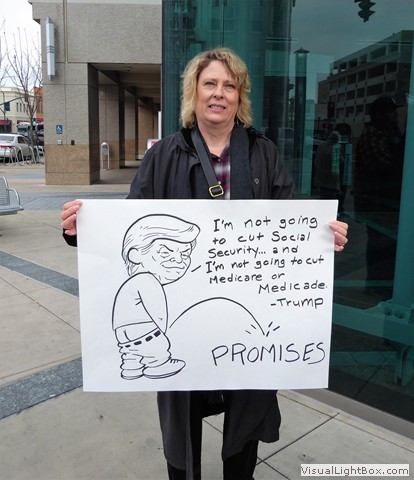 I'm not going
to cut Social
Security... and
I'm not going to cut
Medicare or
Medicade.
-Trump
PROMISES
VisualLightBox.com